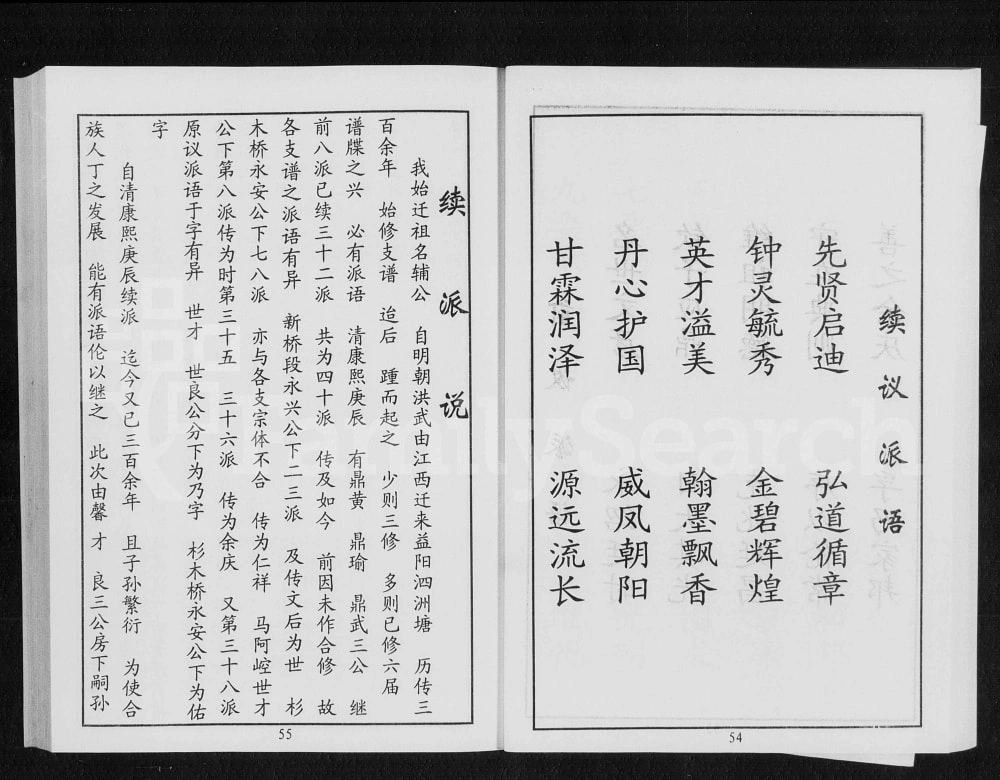 续议派语
先贤启迪 弘道循章
钟灵毓秀 金碧辉煌
英才溢美 翰墨飘香
丹心护国 威凤朝阳
甘霖润泽 源远流长
54
续派说
我始迁祖名辅公 自明朝洪武由江西迁来益阳泗洲塘 历传三
百余年 始修支谱 迨后 踵而起之 少则三修 多则已修六届
谱牒之兴 必有派语 清康熙庚辰 有鼎黄 鼎瑜 鼎武三公 继
前八派已续三十二派 共为四十派 传及如今 前因未作合修 故
各支谱之派语有异 新桥段永兴公下二三派 及传文后为世 杉
木桥永安公下七八派 亦与各支宗体不合 传为仁祥 马阿崆世才
公下第八派传为时第三十五 三十六派 传为余庆 又第三十八派
原议派语于字有异 世才 世良公分下为乃字 杉木桥永安公下为佑
字
自清康熙庚辰续派 迄今又已三百余年 且子孙繁衍 为使合
族人丁之发展 能有派语伦以继之 此次由馨 才 良三公房下嗣孙
55
FamilySearch